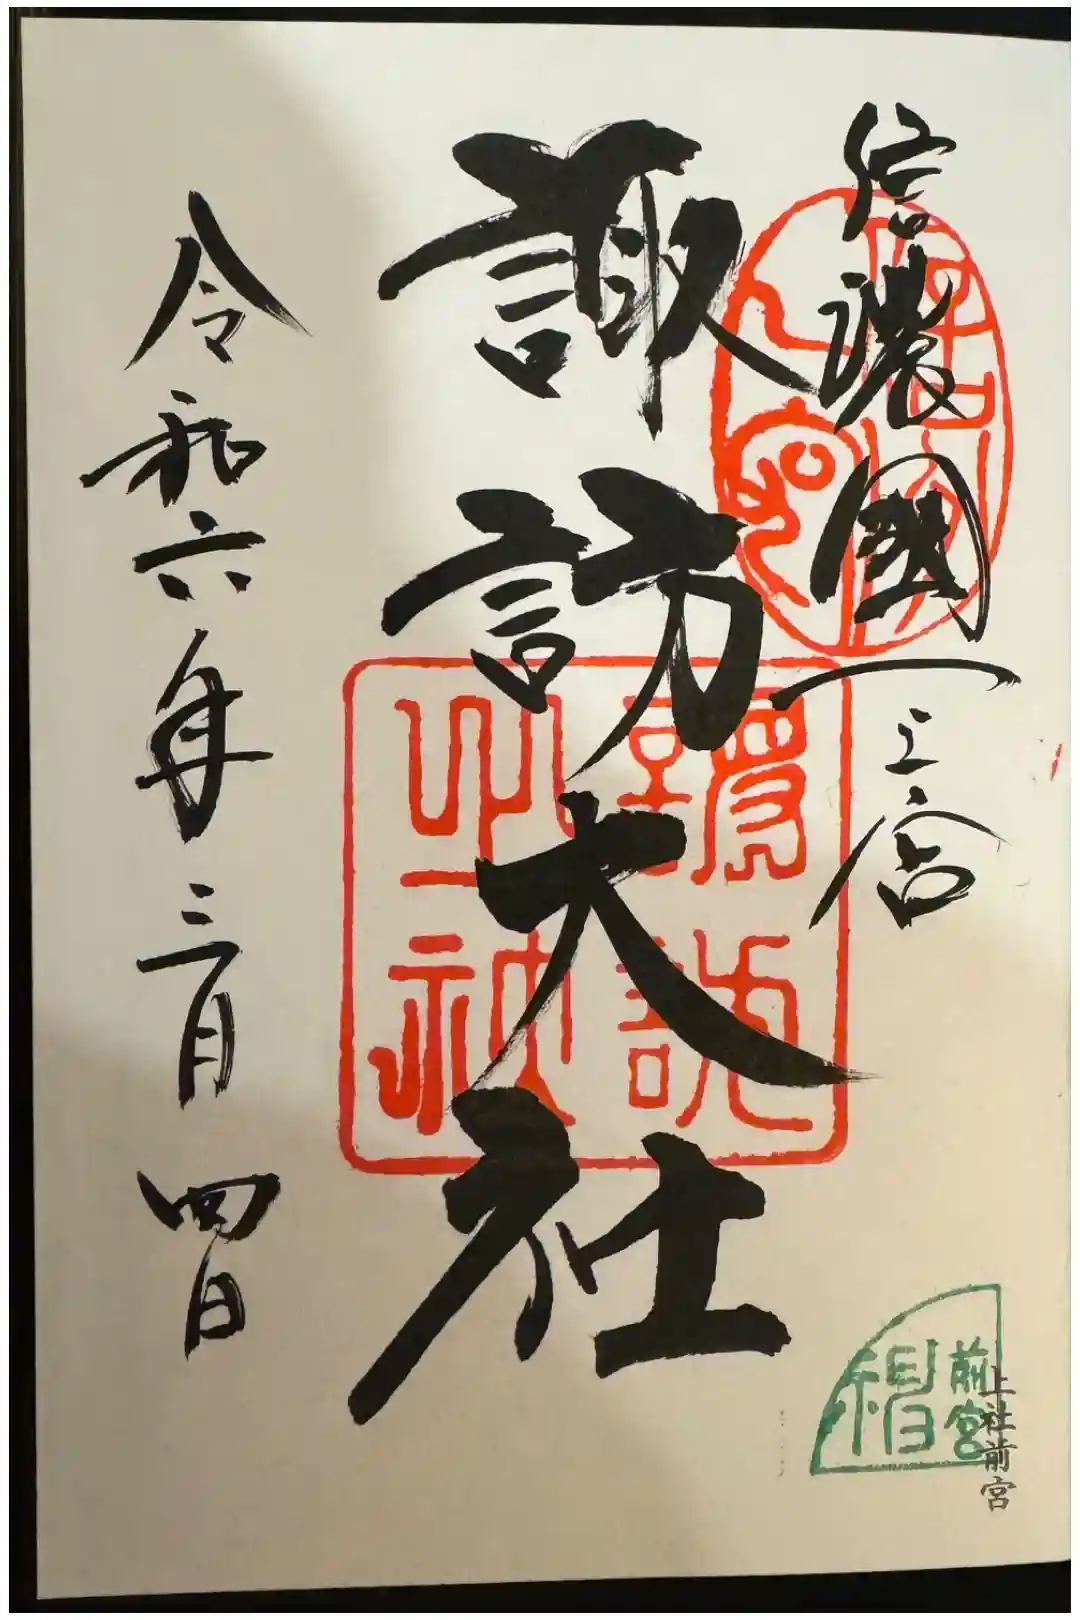 信濃國一之宮
諏訪大社
令和六年三月四日
前宮
上社前宮